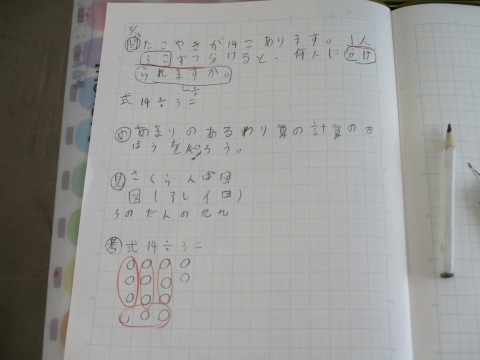 問 たこやきが14こあります。1人
3こずつ分けると、何人に分け
られますか。
÷
式 14÷3=
め あまりのあるわり算の計算の方
ほうを知ろう。
見 さくらんぼ図
図(しるし、イ図)
3のだんの九九
考 式14÷3=